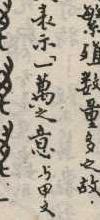 繁殖數量多之故.
表示「萬」之意与甲文